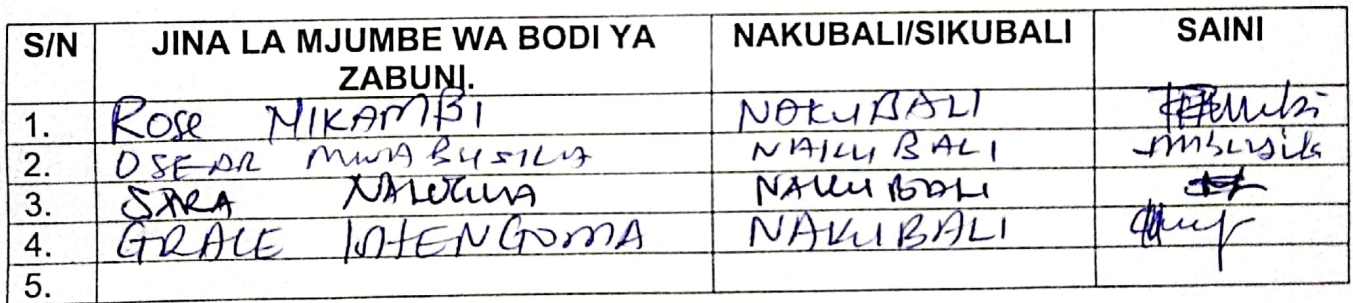 S/N JINA LA MJUMBE WA BODI YA ZABUNI. NAKUBALI/SIKUBALI SAINI
1. ROSE MIKAMBI NAKUBALI
2. OSEAR MWABUSILA NAKUBALI
3. SARA NAKUBALI
4. GRACE NAKUBALI
5.